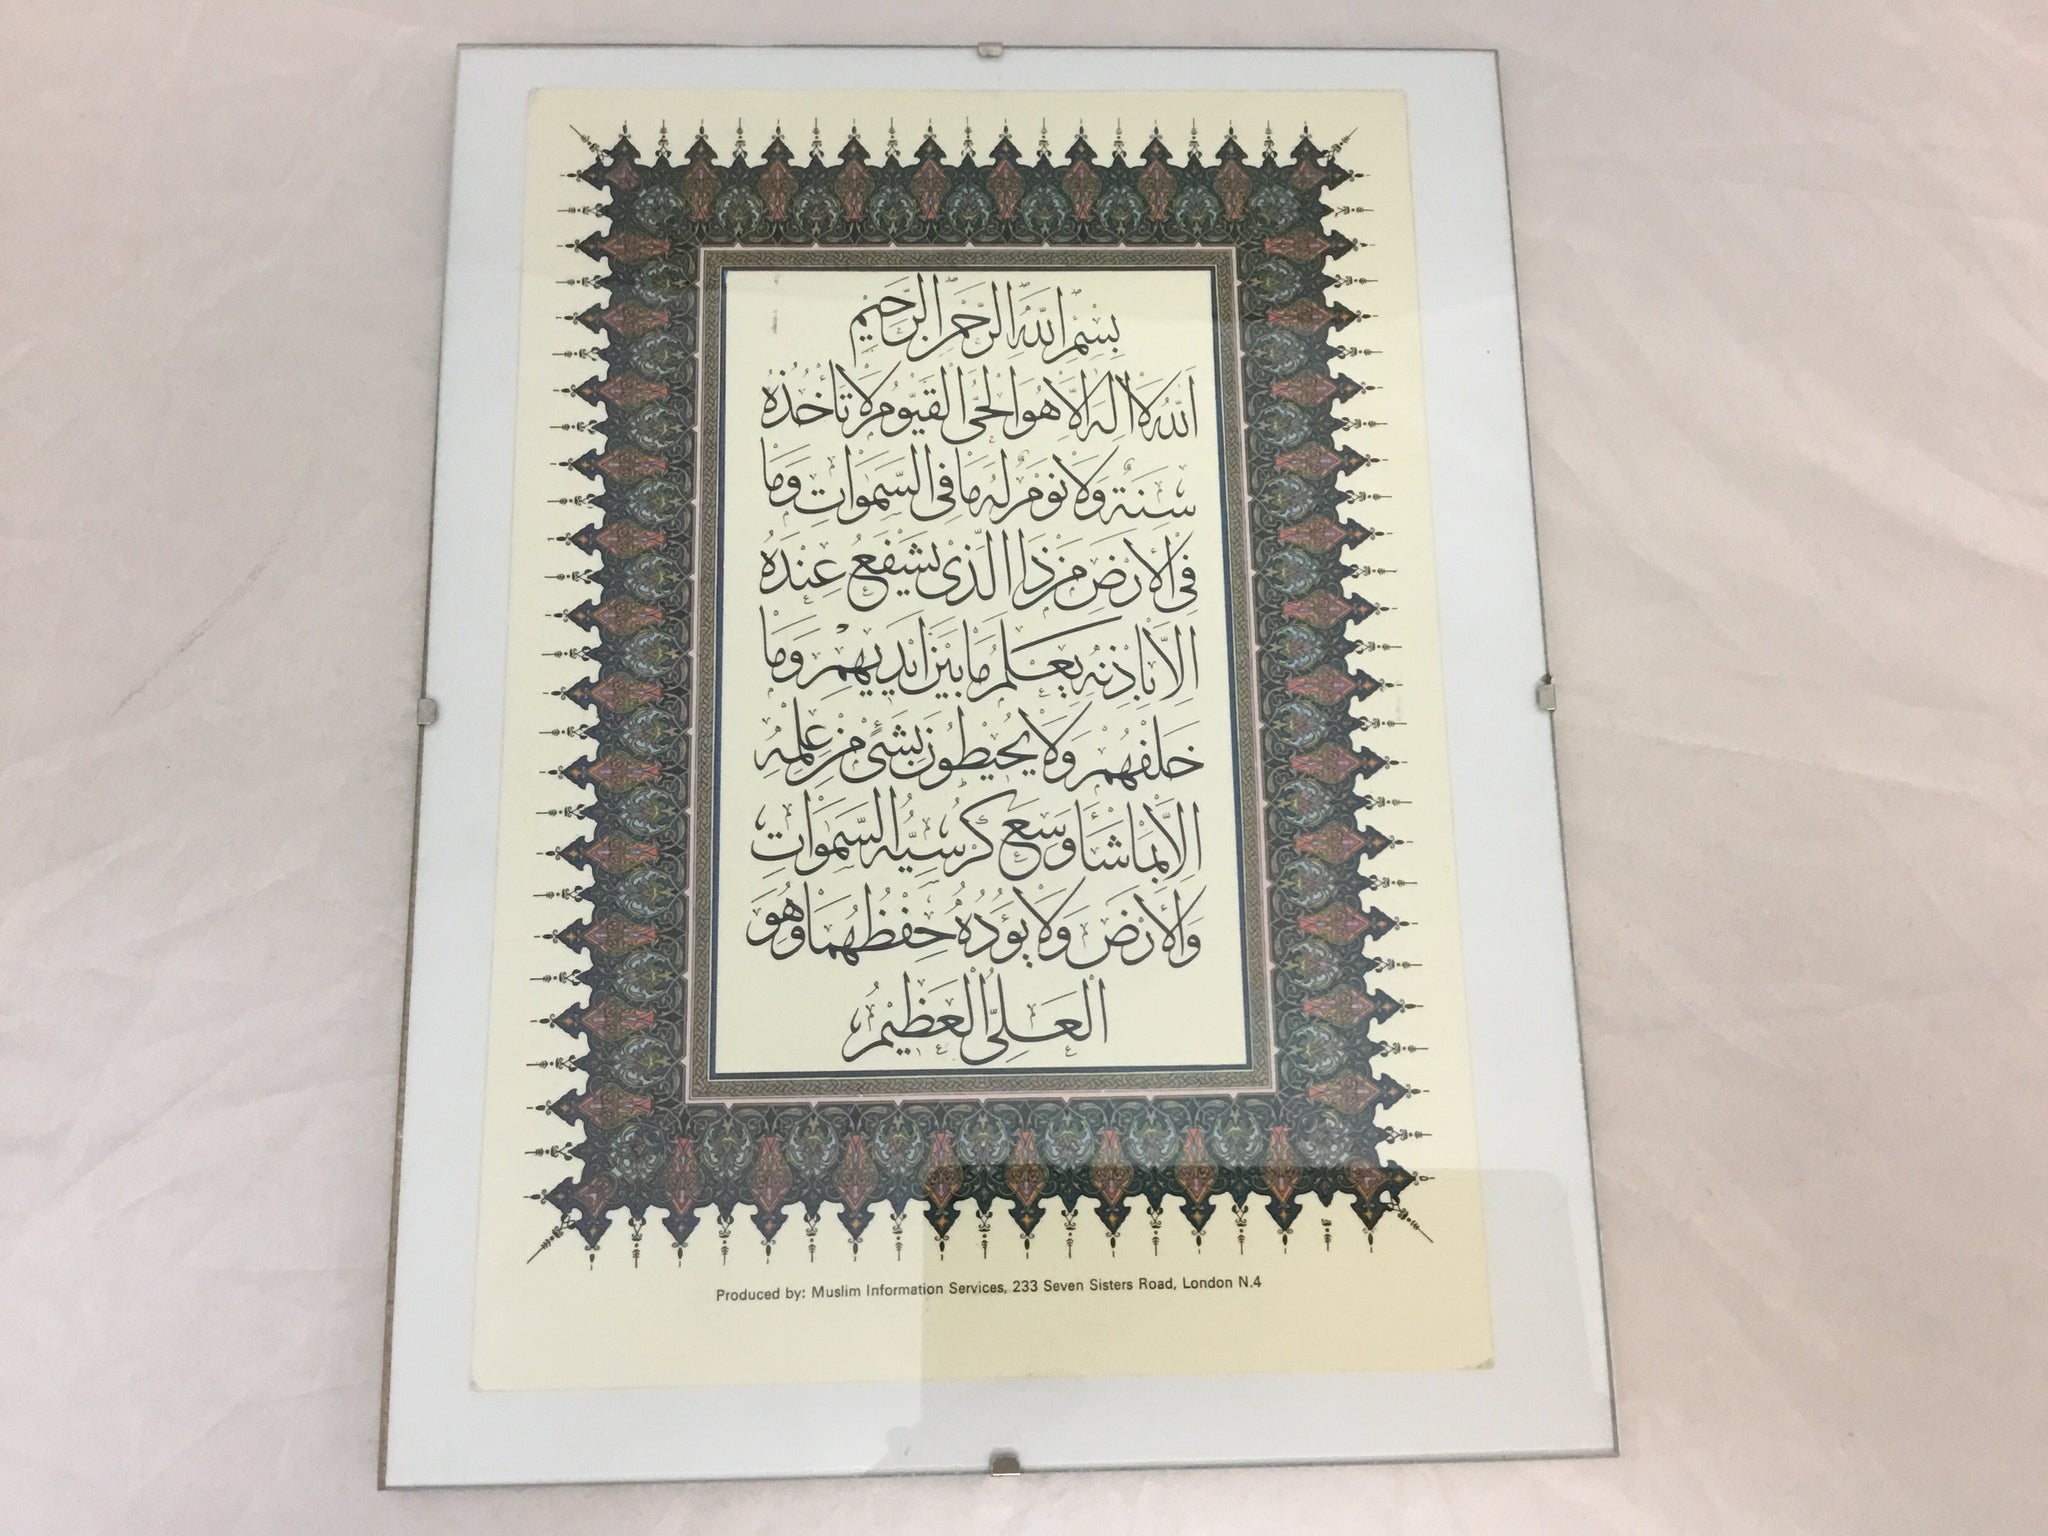 بِسْمِ اللّٰهِ الرَّحْمٰنِ الرَّحِيْمِ
اَللّٰهُ لَا اِلٰهَ اِلَّا هُوَ الْحَىُّ الْقَيُّومُ لَا تَأْخُذُهُ
سِنَةٌ وَلَا نَوْمٌ لَهُ مَا فِى السَّمٰوَاتِ وَمَا
فِى الْاَرْضِ مَنْ ذَا الَّذِى يَشْفَعُ عِنْدَهُ
اِلَّا بِاِذْنِهِ يَعْلَمُ مَا بَيْنَ اَيْدِيهِمْ وَمَا
خَلْفَهُمْ وَلَا يُحِيْطُونَ بِشَىْءٍ مِنْ عِلْمِهِ
اِلَّا بِمَا شَاءَ وَسِعَ كُرْسِيُّهُ السَّمٰوَاتِ
وَالْاَرْضَ وَلَا يَؤُدُهُ حِفْظُهُمَا وَهُوَ
الْعَلِىُّ الْعَظِيْمُ
Produced by: Muslim Information Services, 233 Seven Sisters Road, London N.4